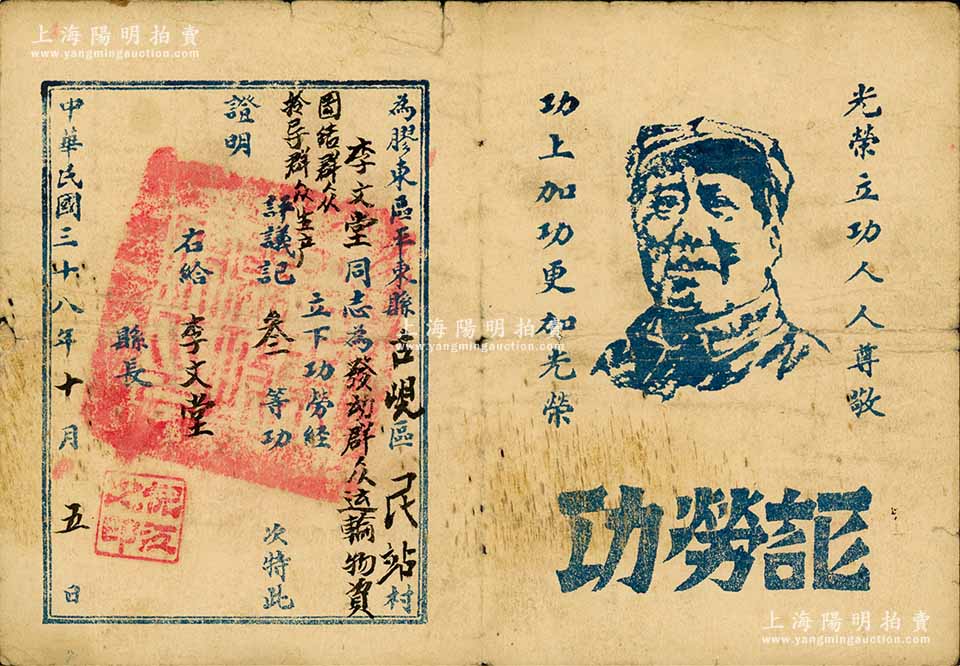 上海陽明拍賣
www.yangmingauction.com
光榮立功人人尊敬
功上加功更加光榮
功勞記
為膠東區平東縣古峴區民站村
李文堂同志為發动群众运輸物資
团结群众
拎导群众生产
立下功勞经
評議記叁等功 次特此
證明
右給 李文堂
縣長
中華民國三十八年十月五日
上海陽明拍賣
www.yangmingauction.com
上海陽明拍賣
www.yangmingauction.com